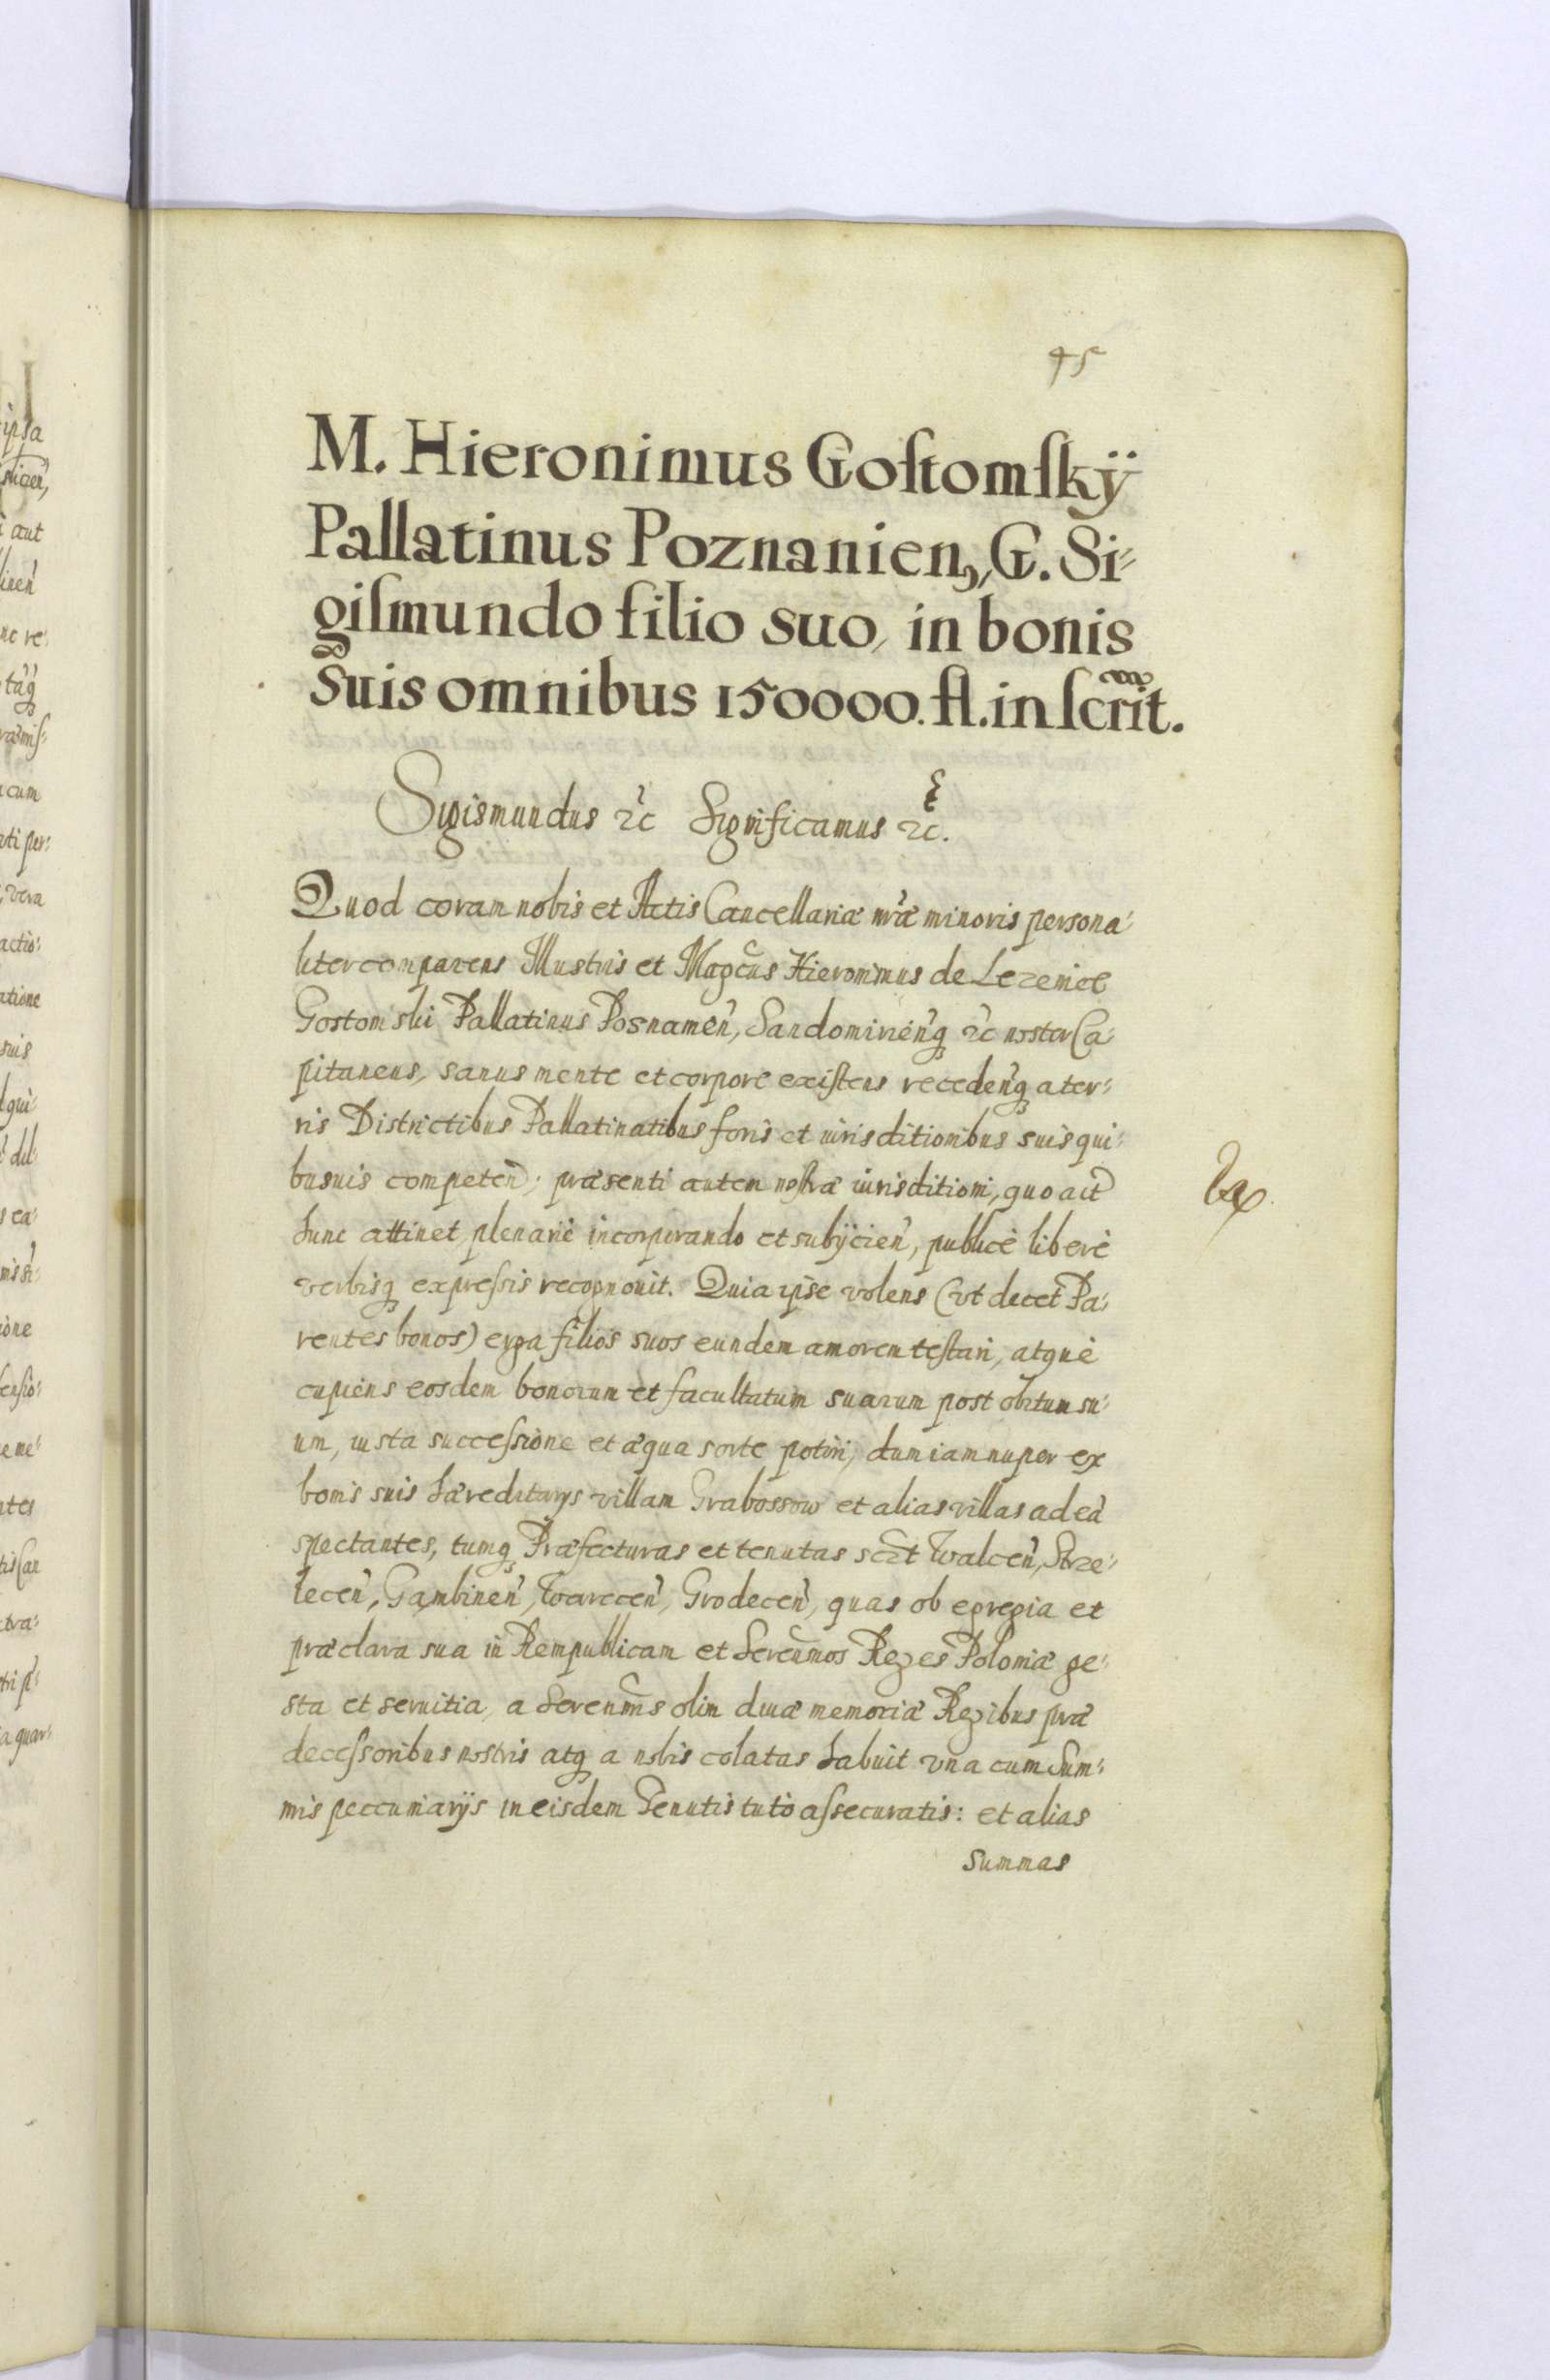 45
M. Hieronimus Goſtomſkÿ
Pallatinus Poznanien, G. Si⸗
giſmundo filio suo, in bonis
Suis omnibus 150000. fl. inſcrit.
Sigismundus ꝛc Significamus ꝛc.
Quod coram nobis et Actis Cancellariæ nr̃æ minoris persona⸗
liter comparens Illustris et Magcus Hieronimus de Lezenice
Gostomski Pallatinus Posnanien̄, Sandomirien̄q ꝛc noster Ca⸗
pitaneus, sanus mente et corpore exiſtens receden̄q a ter⸗
ris Districtibus Pallatinatibus foris et iurisditionibus suis qui⸗
busuis competen̄; præsenti autem noſtræ iurisditioni, quo ait
hunc attinet, plenariè incorporando et subÿcien̄, publicè liberè
verbisq expreſsis recognouit. Quia ipse volens (vt decet Pa⸗
rentes bonos) erga filios suos eundem amorem teſtari, atquè
cupiens eosdem bonorum et facultatum suarum post obitum su⸗
um, iusta succeſsione et æqua sorte potiri, dum iam nuper ex
bonis suis hæreditarÿs villam Grabossow et alias villas ad eā
spectantes, tumq Præfecturas et tenutas sczt Walcen̄, Strze⸗
lecen̄, Gąmbinen̄, Warecen̄, Grodecen̄, quas ob egregia et
præclara sua in Rempublicam et Serenmos Reges Poloniæ ge⸗
sta et seruitia, a Serenmis olim diuæ memoriæ Regibus præ
deceſsoribus nostris atq a nobis colatas habuit vna cum Sum⸗
mis peccuniarÿs in eisdem Tenutis tutò aſsecuratis: et alias
summas